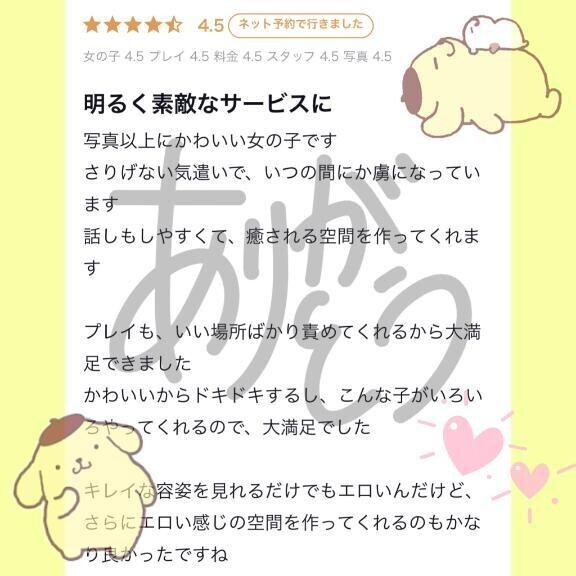 4.5 ネット予約で行きました
女の子 4.5 プレイ 4.5 料金 4.5 スタッフ 4.5 写真 4.5
明るく素敵なサービスに
写真以上にかわいい女の子です
さりげない気遣いで、いつの間にか虜になってい
ます
話しもしやすくて、癒される空間を作ってくれま
す
ありがとう
プレイも、いい場所ばかり責めてくれるから大満
足できました
かわいいからドキドキするし、こんな子がいろい
ろやってくれるので、大満足でした
キレイな容姿を見れるだけでもエロいんだけど、
さらにエロい感じの空間を作ってくれるのもかな
り良かったですね